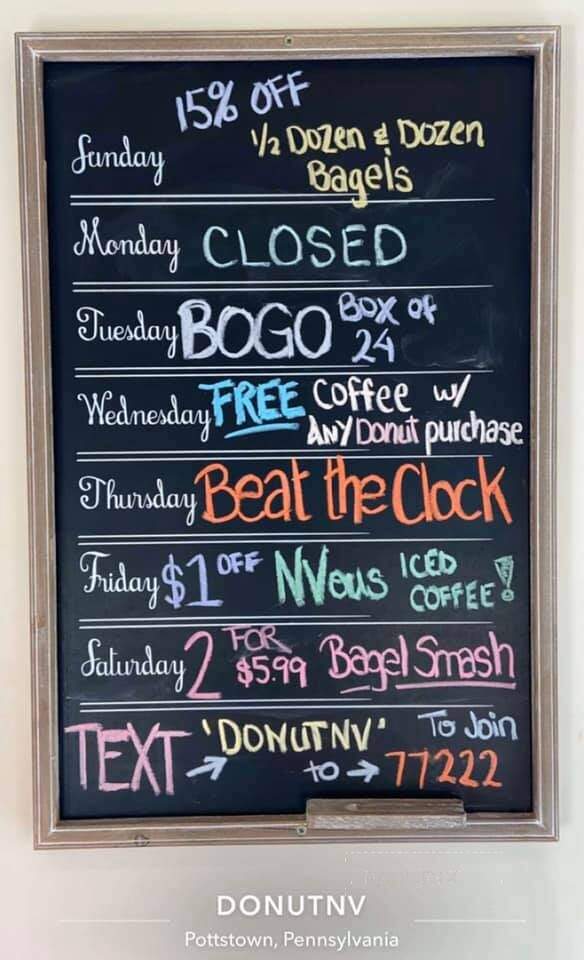 15% OFF
Sunday
1/2 Dozen & Dozen
Bagels
Monday CLOSED
Tuesday BOGO Box of
24
Wednesday FREE Coffee w/
ANY Donut purchase
Thursday Beat the Clock
Friday $1 OFF NVous ICED
COFFEE!
Saturday 2 FOR
$5.99 Bagel Smash
TEXT → 'DONUTNV' To Join
to → 77222
DONUTNV
Pottstown, Pennsylvania